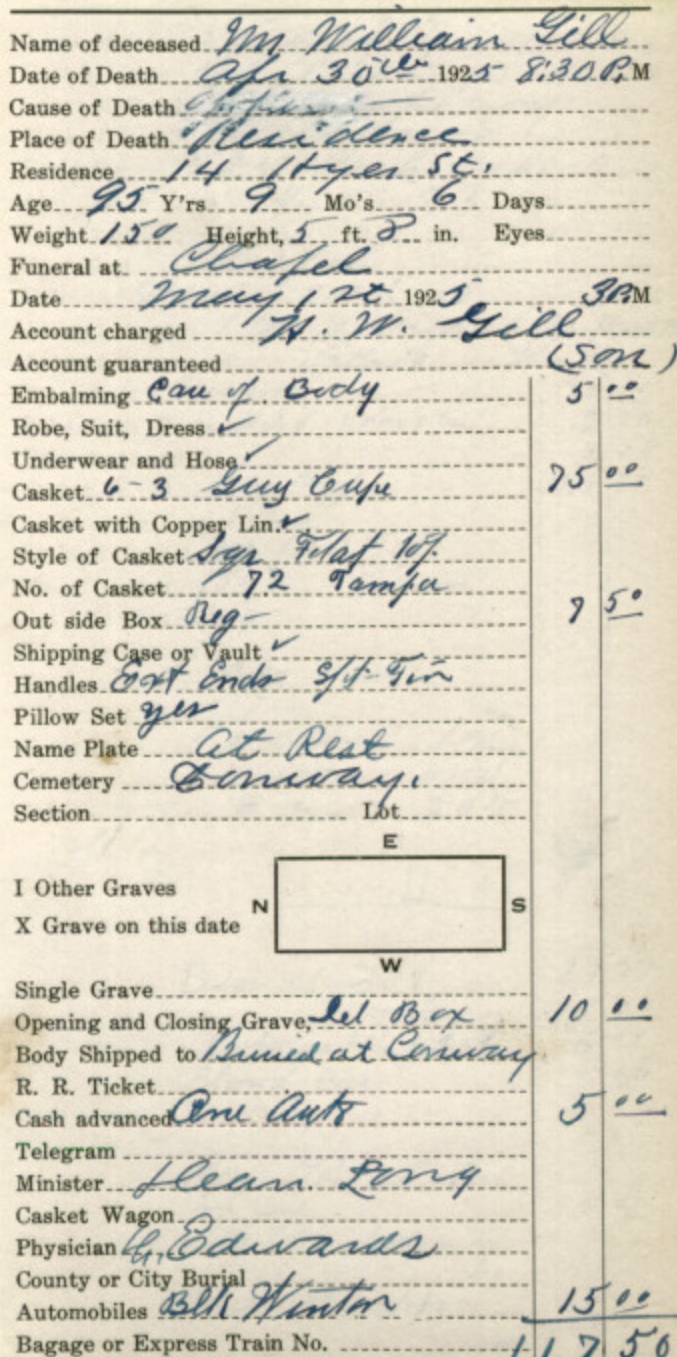 Name of deceased Mr William Gill
Date of Death Apr 30th 1925 8:30 P.M
Cause of Death
Place of Death Residence
Residence 14 Hyer St.
Age 95 Y'rs 9 Mo's 6 Days
Weight 150 Height, 5 ft. 8 in. Eyes
Funeral at Chapel
Date May 1st 1925 3 P.M
Account charged H. W. Gill
Account guaranteed (Son)
Embalming Care of Body 5 00
Robe, Suit, Dress ✓
Underwear and Hose ✓
Casket 6-3 Grey Crepe 75 00
Casket with Copper Lin. ✓
Style of Casket Sqr
No. of Casket 72 Tampa
Out side Box Reg- 7 50
Shipping Case or Vault ✓
Handles Ext Ends
Pillow Set yes
Name Plate At Rest
Cemetery Conway.
Section Lot
E
I Other Graves
N S
X Grave on this date
W
Single Grave
Opening and Closing Grave, del Box 10 00
Body Shipped to Buried at Conway
R. R. Ticket
Cash advanced One Auto 5 00
Telegram
Minister Dean Long
Casket Wagon
Physician Edwards
County or City Burial
Automobiles Blk Winton 15 00
Bagage or Express Train No. 117 50